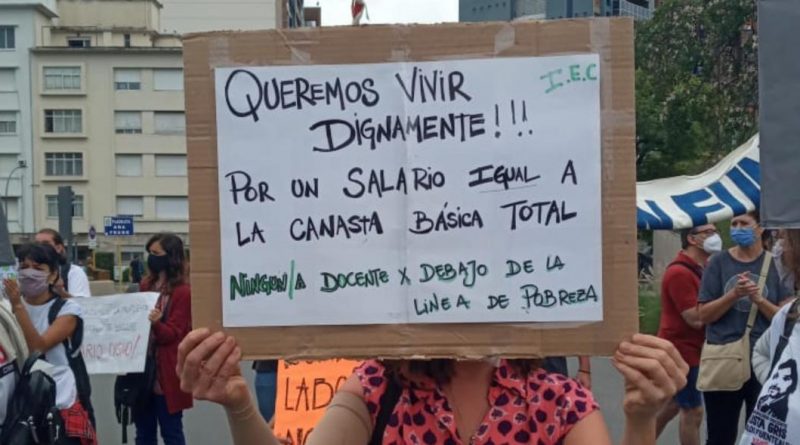 I.E.C
QUEREMOS VIVIR
DIGNAMENTE!!!
POR UN SALARIO IGUAL A
LA CANASTA BÁSICA TOTAL
NINGUN/A DOCENTE X DEBAJO DE LA
LINEA DE POBREZA
PLAZOLETA
ANA
FRANK
LABO